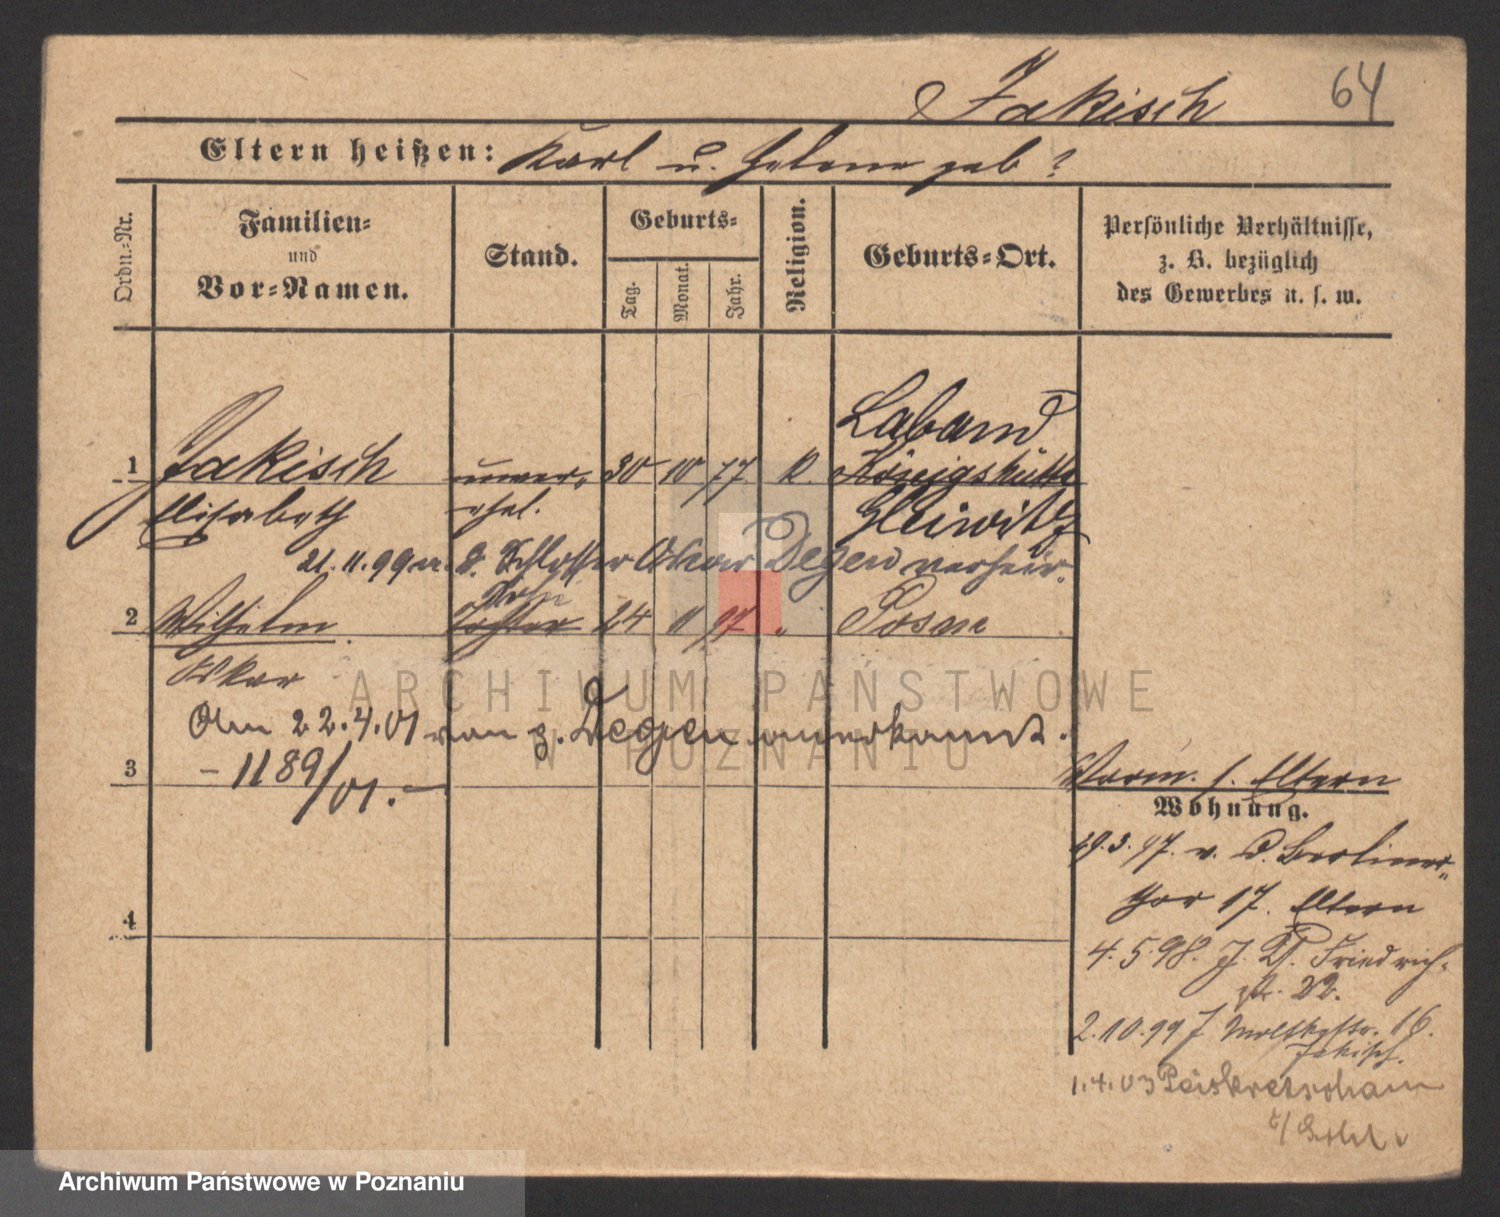 Jakisch 64
Eltern heißen: Karl u. Helene geb ?
Ordn.-Nr.
Familien-
und
Vor-Namen.
Stand.
Geburts-
Tag.
Monat.
Jahr.
Religion.
Geburts-Ort.
Persönliche Verhältnisse,
z. B. bezüglich
des Gewerbes u. s. w.
Laband
1 Jakisch unver- 30 10 77 K. Königshütte
Elisabeth ehel. Gleiwitz
21.11.99 m. d. Schlosser Oskar Degen verheir.
Sohn
2 Wilhelm Tochter 24 11 97 " Posen
Oskar
Am 22.4.01 von g. Degen anerkannt.
3 - 1189/01. -
Vorm. s. Eltern
Wohnung.
29.3.97. v. d. Berliner-
thor 17. Eltern
4
4.5.98. J. W. Friedrich-
str. 22.
2.10.99 J Moltkestr. 16.
Jakisch.
1.4.03 Peiskretscham
ARCHIWUM PAŃSTWOWE
W POZNANIU
Archiwum Państwowe w Poznaniu